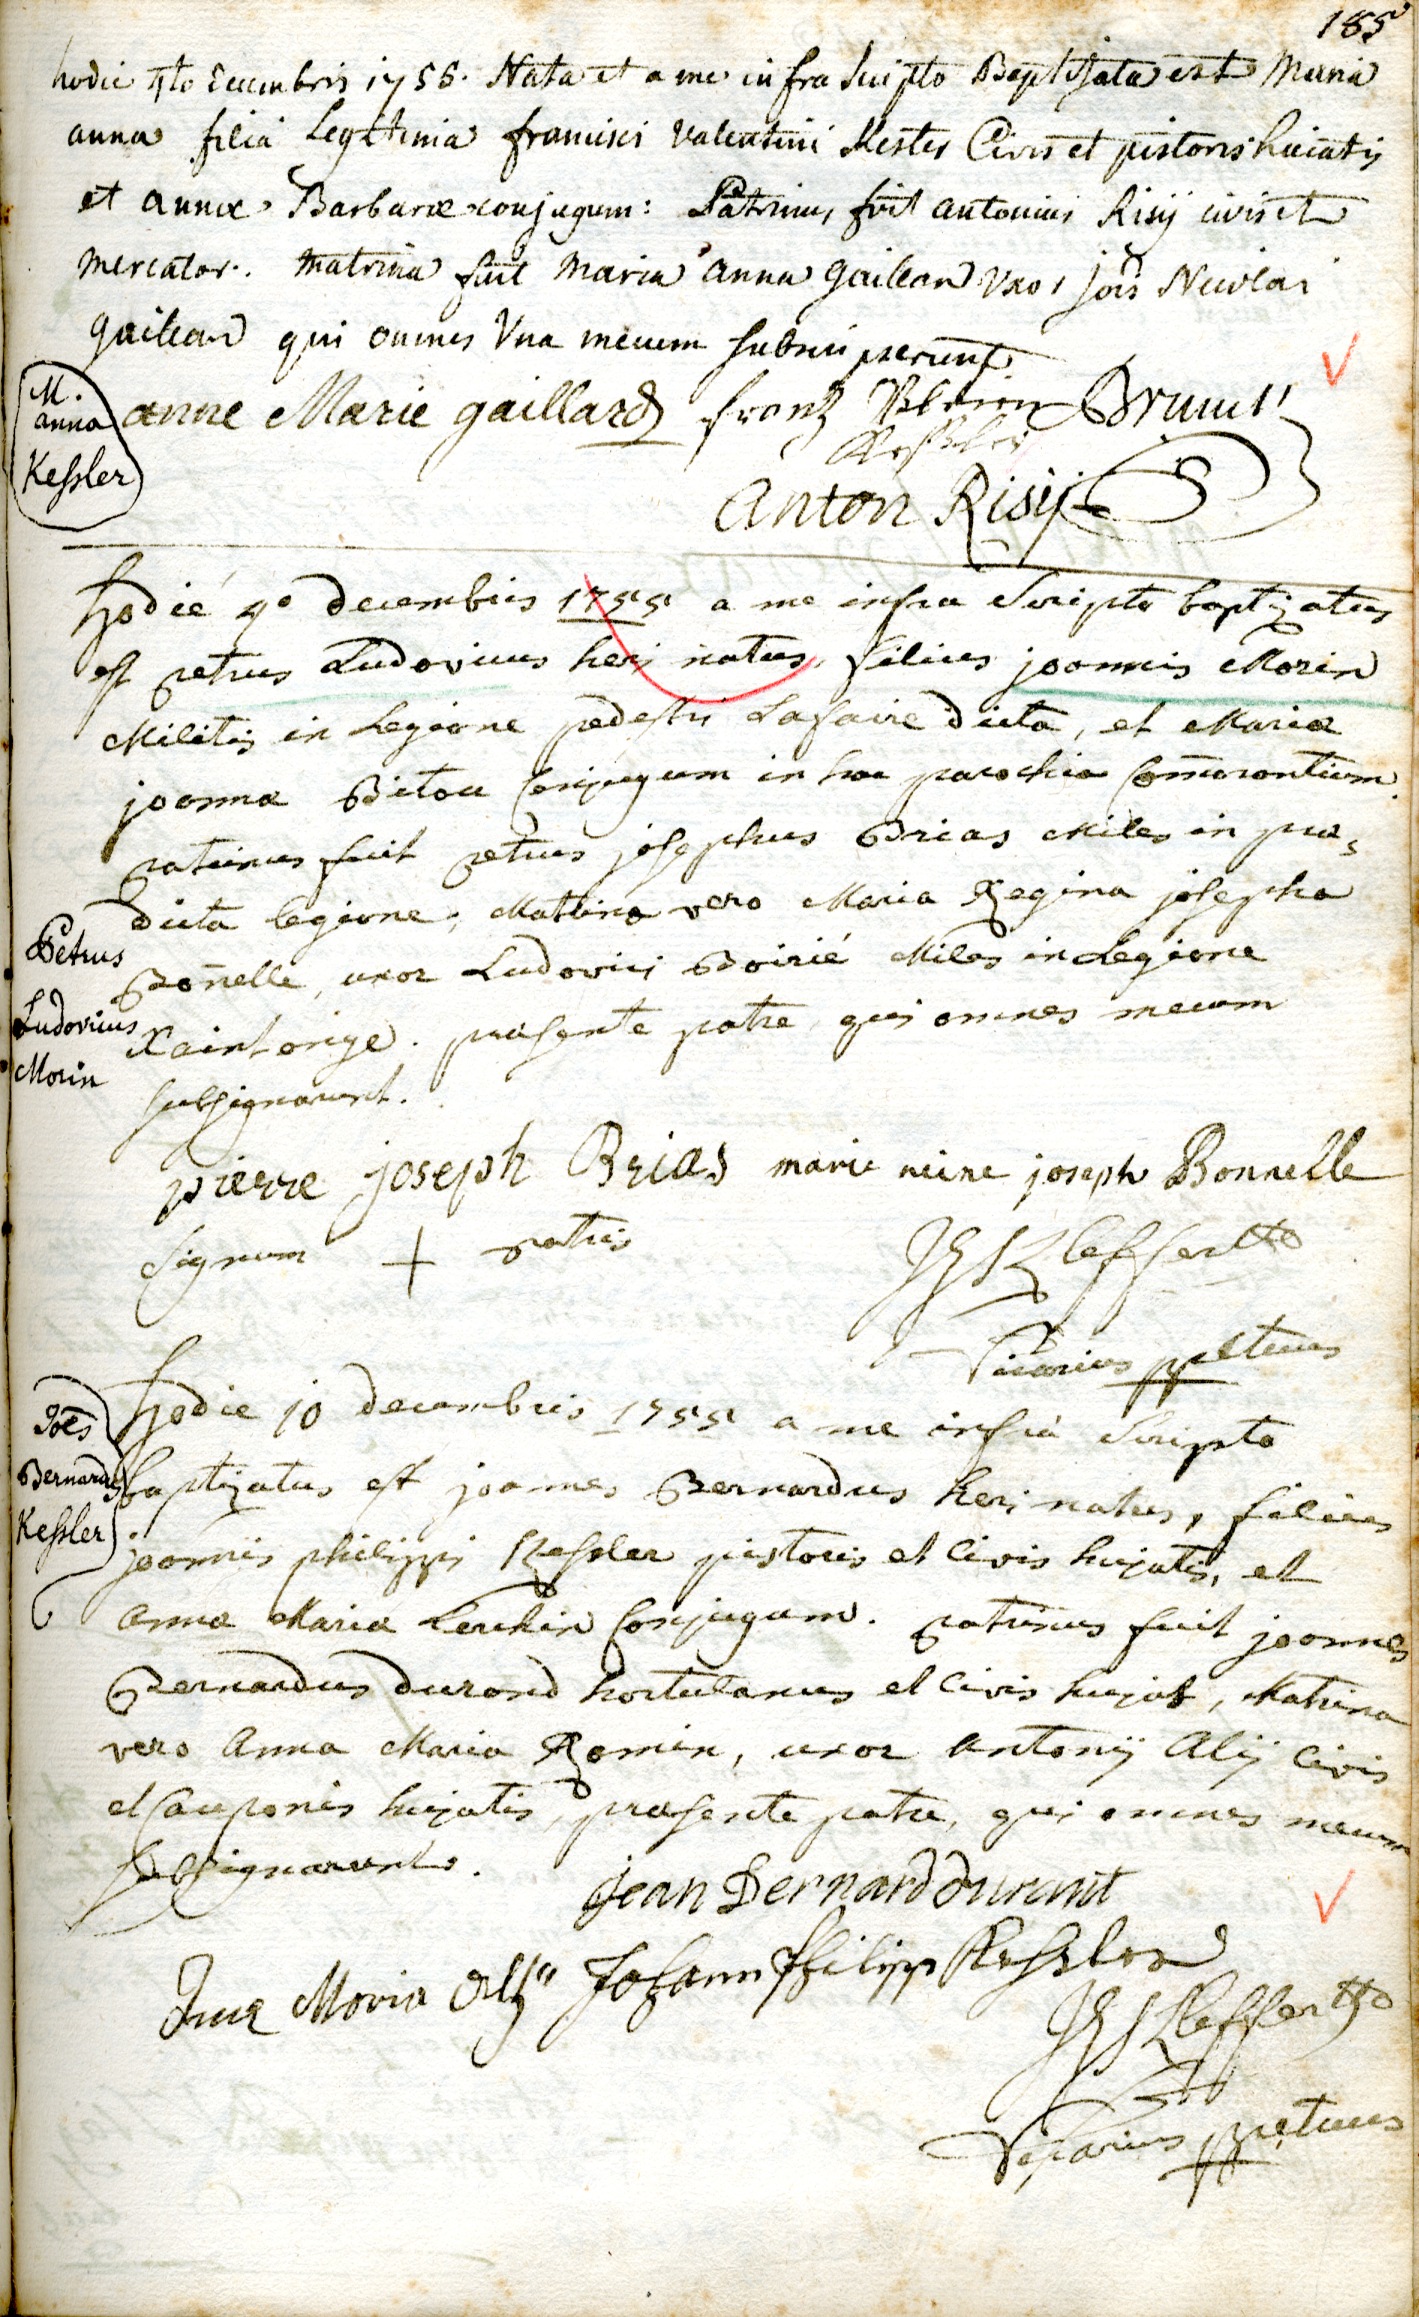 185
hodie 4to decembris 1755. Nata et a me infra scripto Baptizata est Maria
anna filia Legitima francisci Valentini Kesler Civis et pistoris huiatis
et annæ Barbaræ conjugum: Patrinus fuit antonius Risij civis et
mercator. matrina fuit Maria anna gaillard Uxor jois Nicolai
gaillard qui omnes Una mecum subscripserunt
M.
anna
Keſsler
anne Marie gaillard franz
Anton Risij
Hodie 4º decembris 1755 a me infra Scripto baptizatus
est petrus Ludovicus heri natus, filius joannis Morin
Militis in Legione pedestri Lafaire dicta, et Mariæ
joannæ Bitou Conjugum in hac parochia Com̄orantium.
patrinus fuit petrus josephus Brias Miles in præ=
dicta legione, Matrina vero Maria Regina josepha
Bon̄elle, uxor Ludovici Boirié Miles in Legione
Xaintonge. præsente patre, qui omnes mecum
subsignarunt.
Petrus
Ludovicus
Morin
pierre joseph Brias marie reine joseph Bonnelle
Signum + patris
Vicarius ppetuus
Joēs
Bernardus
Keſsler
Hodie 10 decembris 1755 a me infra Scripto
baptizatus est joannes Bernardus heri natus, filius
joannis philippi Keſsler pistoris et Civis hujatis, et
Annæ Mariæ Lerchin Conjugum. patrinus fuit joannes
Bernardus durand hortulanus et Civis hujas, Matrina
vero Anna Maria Romin, uxor Antonij Alij Civis
et Cauponis hujatis, præsente patre, qui omnes mecum
subsignarunt.
jean Bernard durant
Anna Maria Alÿ Johann Philipp Keßler
Vicarius ppetuus